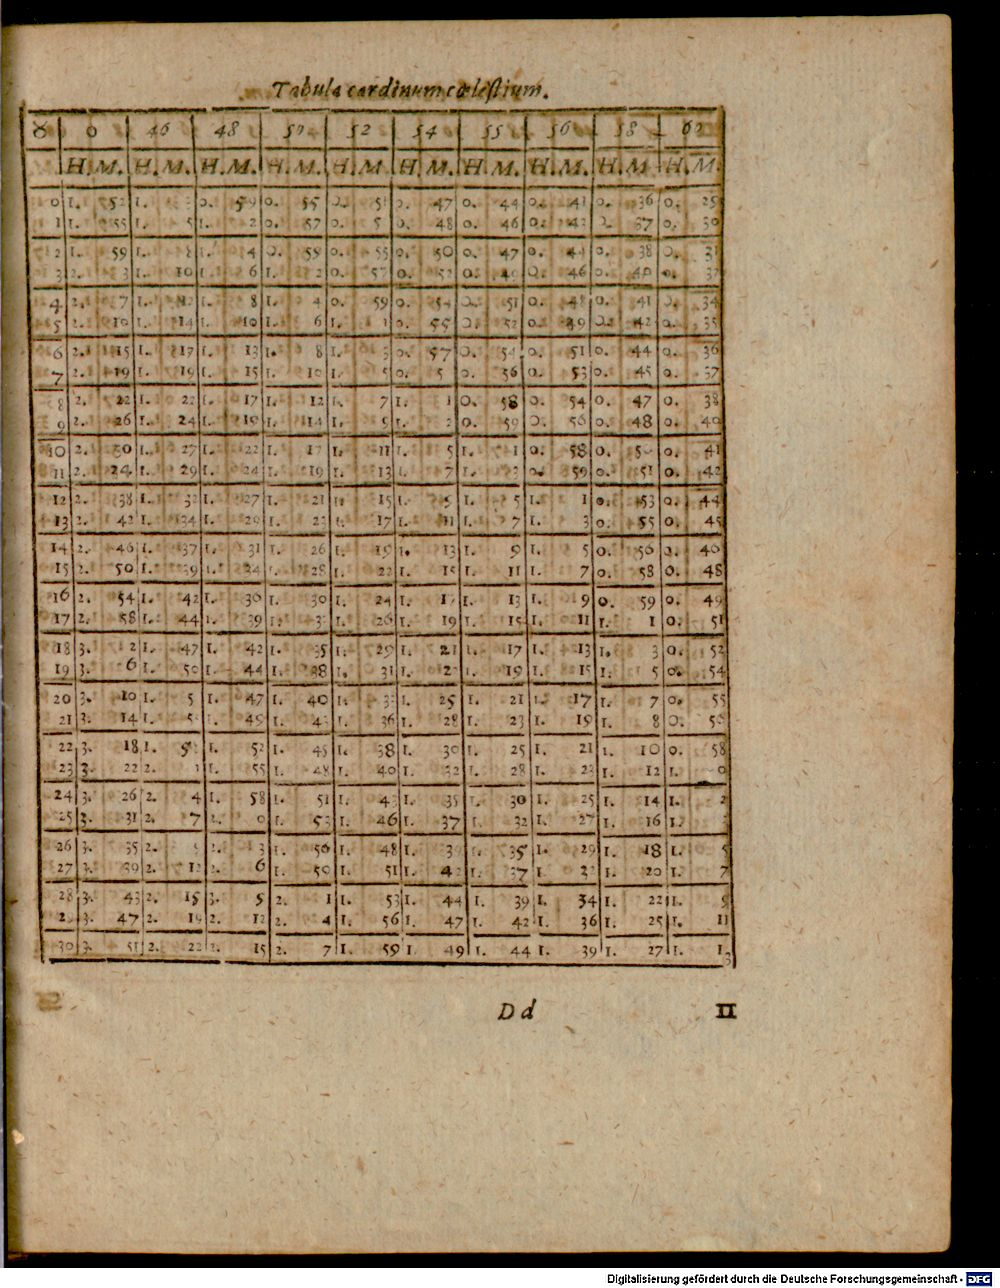 Tabula cardinum cœlestium.
♉ 0 46 48 50 52 54 55 56 58 60
H. M. H. M. H. M. H. M. H. M. H. M. H. M. H. M. H. M. H. M.
0 1. 52 1. 3 0. 59 0. 55 0. 51 0. 47 0. 44 0. 41 0. 36 0. 29
1 1. 55 1. 5 1. 2 0. 57 0. 0. 48 0. 46 0. 42 0. 37 0. 30
2 1. 59 1. 8 1. 4 0. 59 0. 55 0. 50 0. 47 0. 44 0. 38 0. 31
3 2. 3 1. 10 1. 6 1. 2 0. 57 0. 52 0. 0. 46 0. 40 0. 32
4 2. 7 1. 12 1. 8 1. 4 0. 59 0. 54 0. 51 0. 48 0. 41 0. 34
5 2. 10 1. 14 1. 10 1. 6 1. 1 0. 55 0. 52 0. 49 0. 42 0. 35
6 2. 15 1. 17 1. 13 1. 8 1. 3 0. 57 0. 54 0. 51 0. 44 0. 36
7 2. 19 1. 19 1. 15 1. 10 1. 5 0. 5 0. 56 0. 53 0. 45 0. 37
8 2. 22 1. 22 1. 17 1. 12 1. 7 1. 1 0. 58 0. 54 0. 47 0. 38
9 2. 26 1. 24 1. 19 1. 14 1. 9 1. 2 0. 59 0. 56 0. 48 0. 40
10 2. 30 1. 27 1. 22 1. 17 1. 11 1. 5 1. 1 0. 58 0. 50 0. 41
11 2. 34 1. 29 1. 24 1. 19 1. 13 1. 7 1. 3 0. 59 0. 51 0. 42
12 2. 38 1. 32 1. 27 1. 21 1. 15 1. 9 1. 5 1. 1 0. 53 0. 44
13 2. 42 1. 34 1. 29 1. 23 1. 17 1. 11 1. 7 1. 3 0. 55 0. 45
14 2. 46 1. 37 1. 31 1. 26 1. 19 1. 13 1. 9 1. 5 0. 56 0. 46
15 2. 50 1. 39 1. 34 1. 28 1. 22 1. 15 1. 11 1. 7 0. 58 0. 48
16 2. 54 1. 42 1. 36 1. 30 1. 24 1. 17 1. 13 1. 9 0. 59 0. 49
17 2. 58 1. 44 1. 39 1. 3 1. 26 1. 19 1. 15 1. 11 1. 1 0. 51
18 3. 2 1. 47 1. 42 1. 35 1. 29 1. 21 1. 17 1. 13 1. 3 0. 52
19 3. 6 1. 50 1. 44 1. 38 1. 31 1. 23 1. 19 1. 15 1. 5 0. 54
20 3. 10 1. 5 1. 47 1. 40 1. 33 1. 25 1. 21 1. 17 1. 7 0. 55
21 3. 14 1. 5 1. 49 1. 43 1. 36 1. 28 1. 23 1. 19 1. 8 0. 56
22 3. 18 1. 5 1. 52 1. 45 1. 38 1. 30 1. 25 1. 21 1. 10 0. 58
23 3. 22 2. 1 1. 55 1. 48 1. 40 1. 32 1. 28 1. 23 1. 12 1. 0
24 3. 26 2. 4 1. 58 1. 51 1. 43 1. 35 1. 30 1. 25 1. 14 1. 2
25 3. 31 2. 7 2. 0 1. 53 1. 46 1. 37 1. 32 1. 27 1. 16 1.
26 3. 35 2. 9 2. 3 1. 56 1. 48 1. 39 1. 35 1. 29 1. 18 1. 5
27 3. 39 2. 12 2. 6 1. 59 1. 51 1. 42 1. 37 1. 32 1. 20 1. 7
28 3. 43 2. 15 3. 5 2. 1 1. 53 1. 44 1. 39 1. 34 1. 22 1. 9
2 3. 47 2. 19 2. 12 2. 4 1. 56 1. 47 1. 42 1. 36 1. 25 1. 11
30 3. 51 2. 22 2. 15 2. 7 1. 59 1. 49 1. 44 1. 39 1. 27 1. 13
D d ♊
Digitalisierung gefördert durch die Deutsche Forschungsgemeinschaft - DFG